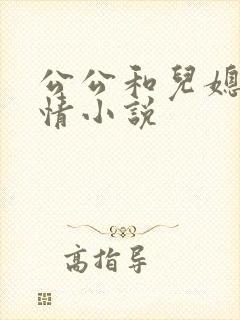 公公和兒媳
情小説
高指导